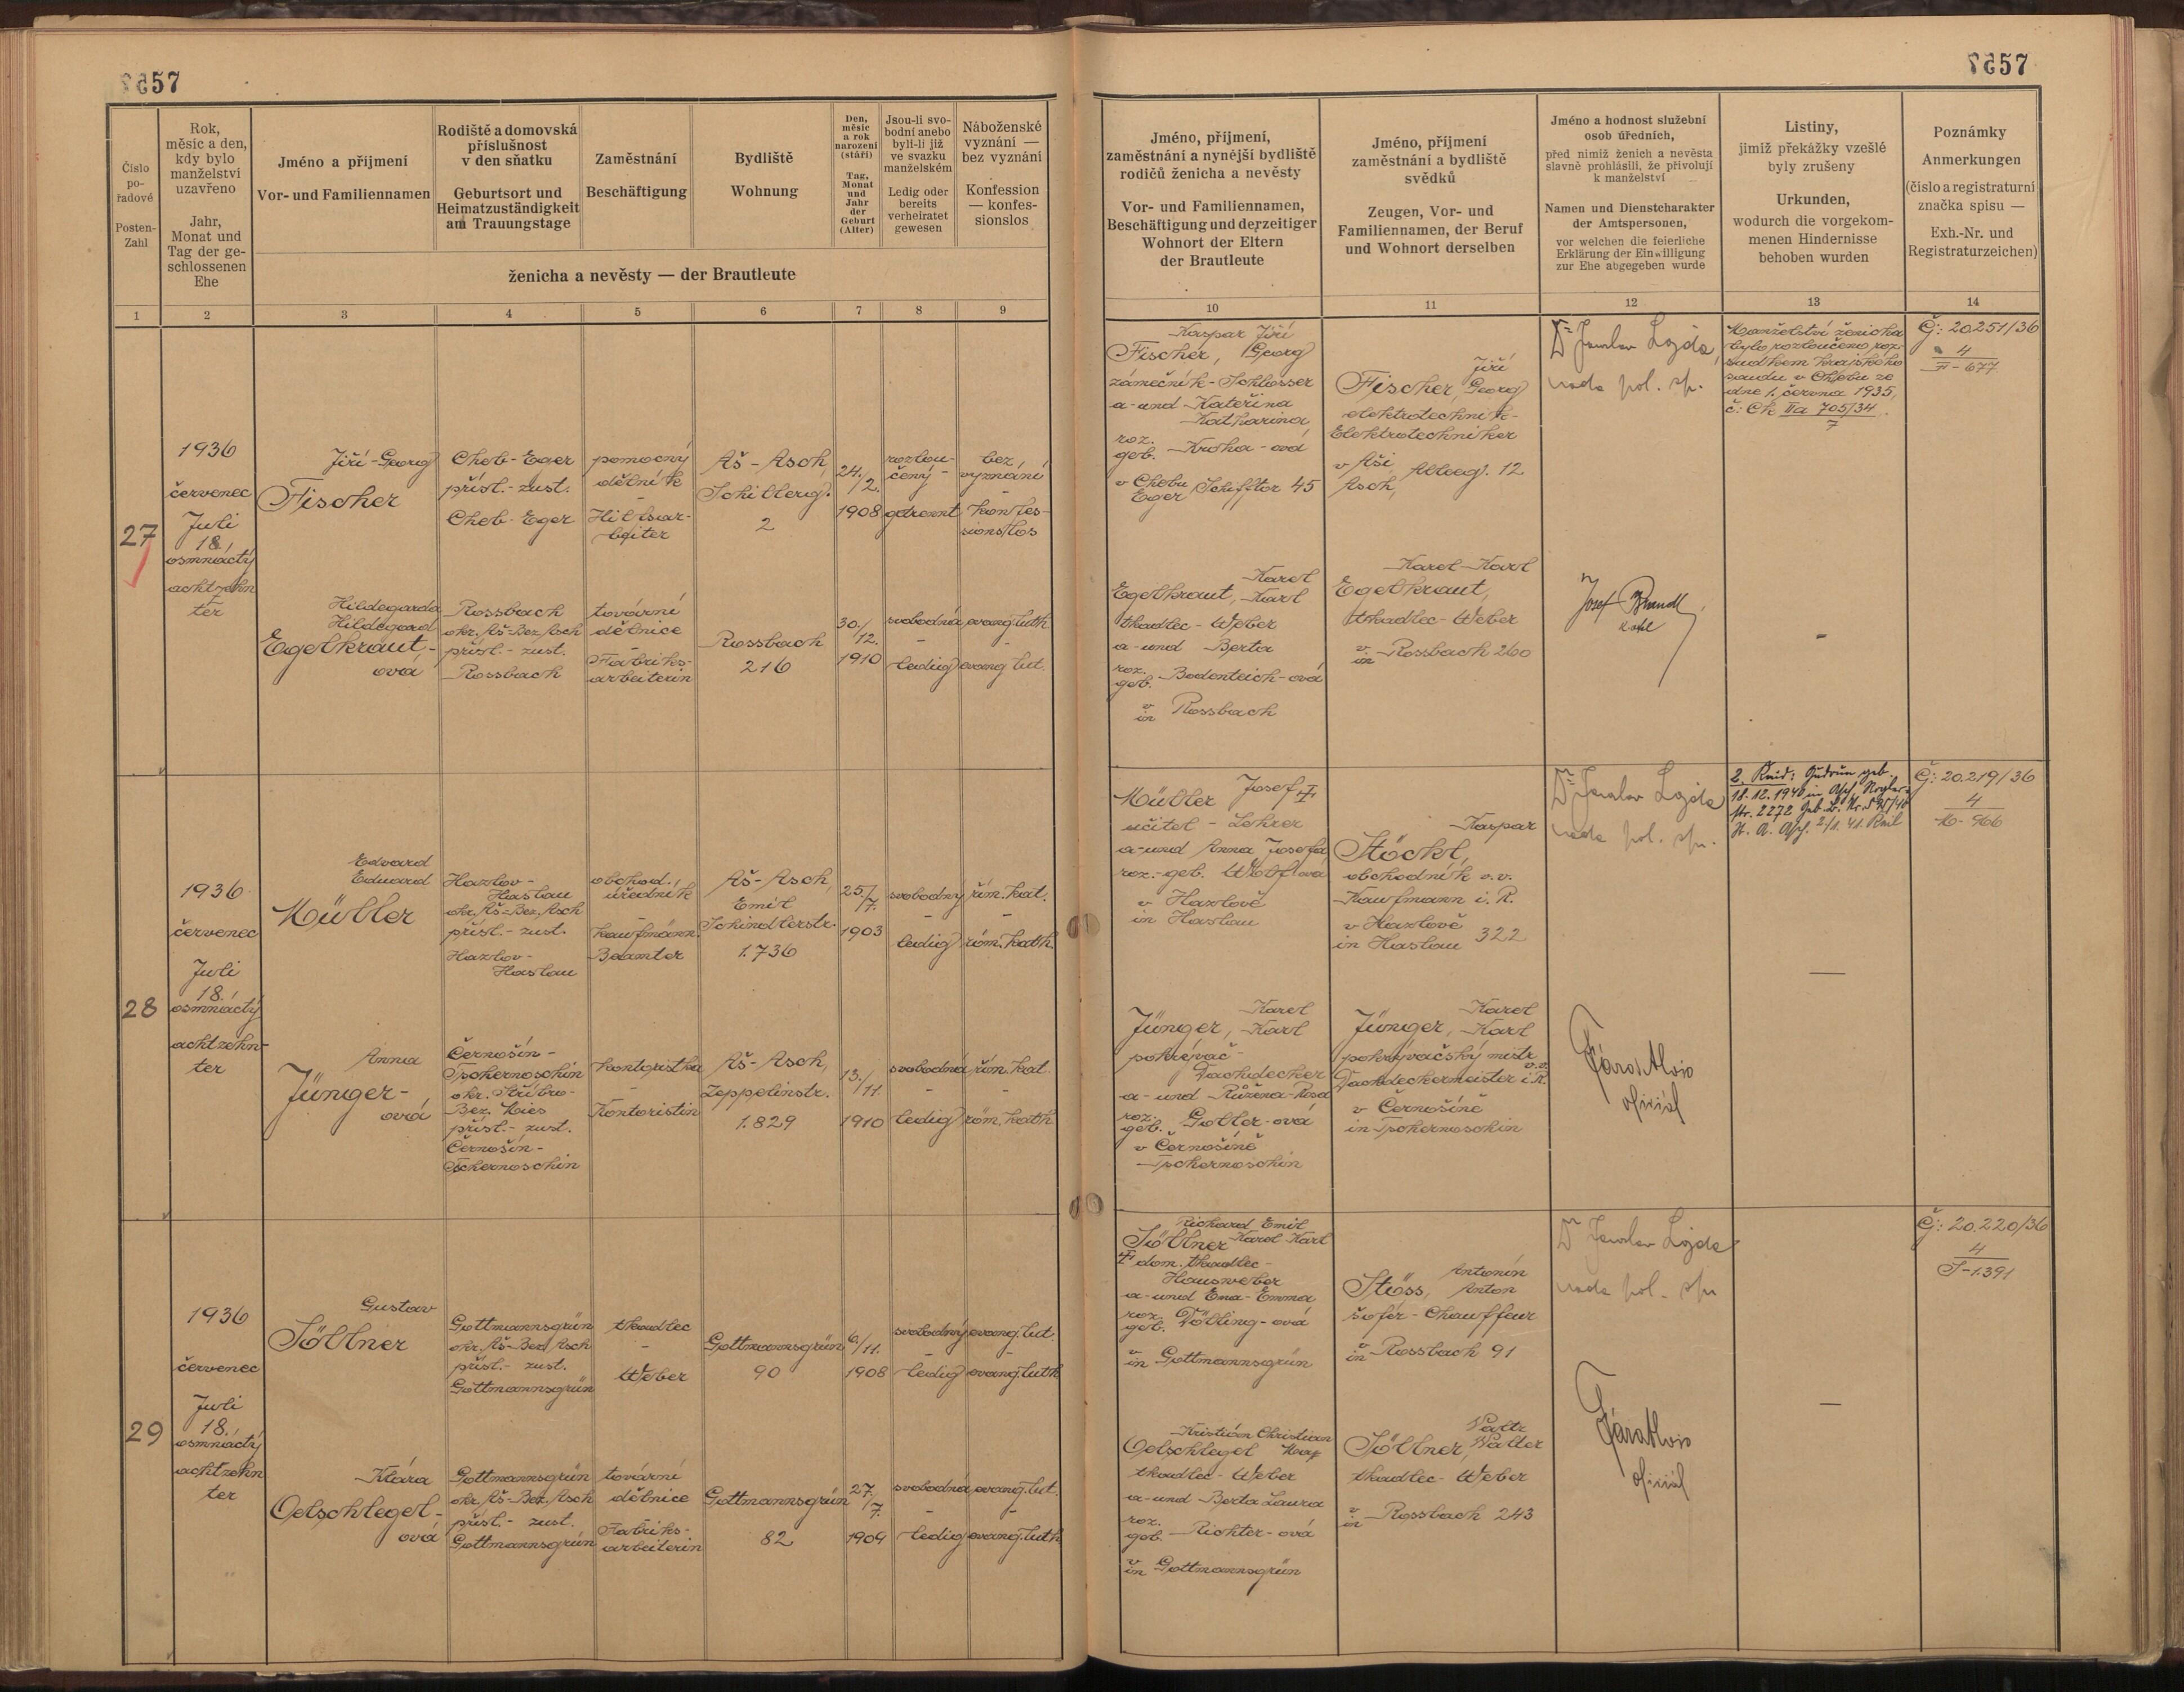 57
57
Číslo
po-
řadové
Posten-
Zahl
Rok,
měsíc a den,
kdy bylo
manželství
uzavřeno
Jahr,
Monat und
Tag der ge-
schlossenen
Ehe
Jméno a příjmení
Vor- und Familiennamen
Rodiště a domovská
příslušnost
v den sňatku
Geburtsort und
Heimatzuständigkeit
am Trauungstage
Zaměstnání
Beschäftigung
Bydliště
Wohnung
Den,
měsíc
a rok
narození
(stáří)
Tag,
Monat
und
Jahr
der
Geburt
(Alter)
Jsou-li svo-
bodní anebo
byli-li již
ve svazku
manželském
Ledig oder
bereits
verheiratet
gewesen
Náboženské
vyznání —
bez vyznání
Konfession
— konfes-
sionslos
ženicha a nevěsty — der Brautleute
Jméno, příjmení,
zaměstnání a nynější bydliště
rodičů ženicha a nevěsty
Vor- und Familiennamen,
Beschäftigung und derzeitiger
Wohnort der Eltern
der Brautleute
Jméno, příjmení
zaměstnání a bydliště
svědků
Zeugen, Vor- und
Familiennamen, der Beruf
und Wohnort derselben
Jméno a hodnost služební
osob úředních,
před nimiž ženich a nevěsta
slavně prohlásili, že přivolují
k manželství
Namen und Dienstcharakter
der Amtspersonen,
vor welchen die feierliche
Erklärung der Einwilligung
zur Ehe abgegeben wurde
Listiny,
jimiž překážky vzešlé
byly zrušeny
Urkunden,
wodurch die vorgekom-
menen Hindernisse
behoben wurden
Poznámky
Anmerkungen
(číslo a registraturní
značka spisu —
Exh.-Nr. und
Registraturzeichen)
1 2 3 4 5 6 7 8 9 10 11 12 13 14
27
1936
červenec
Juli
18.
osmnáctý
achtzehn
ter
Jiří-Georg
Fischer
Cheb-Eger
přísl.- zust.
Cheb-Eger
pomocný
dělník
-
Hilfsar-
beiter
Aš-Asch,
Schillerg.
2
24./
2.
1908
rozlou-
čený -
getrennt
bez
vyznání
-
konfes-
sionslos
Kaspar Jiří
Fischer, Georg
zámečník-Schlosser
a-und Kateřina
Katharina,
roz.
geb. Kroha-ová
v Chebu
Eger Schifftor 45
Jiří
Fischer, Georg
elektrotechnik-
Elektrotechniker
v Aši,
Asch, Alleeg. 12
Dr Jaroslav Lojda,
rada pol. sp.
Manželství ženicha
bylo rozloučeno roz-
sudkem krajského
soudu v Chebu ze
dne 1. června 1935,
č: Ck IIa 705/34
7
Č: 20251/36
4
F-677
Hildegarda
Hildegard
Egelkraut-
ová
Rossbach
okr. Aš-Bez. Asch
přísl.- zust.
Rossbach
tovární
dělnice
-
Fabriks-
arbeiterin
Rossbach
216
30./
12.
1910
svobodná
-
ledig
evang. luth.
-
evang. lut.
Karel
Egelkraut, Karl
tkadlec-Weber
a-und Berta
roz.
geb. Bodenteich-ová
v
in Rossbach
Karel-Karl
Egelkraut,
tkadlec-Weber
v
in Rossbach 260
Josef Brandl
-
28
1936
červenec
Juli
18.
osmnáctý
achtzehn-
ter
Edvard
Eduard
Müller
Hazlov-
Haslau
okr. Aš-Bez. Asch
přísl.- zust.
Hazlov-
Haslau
obchod.
úředník
-
kaufmänn.
Beamter
Aš-Asch,
Emil
Schindlerstr.
1.736
25./
7.
1903
svobodný
-
ledig
řím. kat.
-
röm. kath.
Müller Josef †
učitel-Lehrer
a-und Anna Josefa
roz.-geb. Wolflová
v Hazlově
in Haslau
Kaspar
Stöckl,
obchodník v.v.
Kaufmann i. R.
v Hazlově
in Haslau 322
Dr Jaroslav Lojda
rada pol. sp.
2. Kind: Gudrun geb.
18.12.1940 in Asch,
str. 2272
Č: 20.219/36
4
M-466
Anna
Jünger-
ová
Černošín-
Tschernoschin
okr. Stříbro-
Bez. Mies
přísl.- zust.
Černošín-
Tschernoschin
kontoristka
-
Kontoristin
Aš-Asch,
Zeppelinstr.
1.829
13./
11.
1910
svobodná
-
ledig
řím. kat.
-
röm. kath.
Karel
Jünger, Karl
pokrývač-
Dachdecker
a-und Růžena-Rosa
roz.
geb. Goller-ová
v Černošíně
Tschernoschin
Karel
Jünger, Karl
pokrývačský mistr
v.v.
Dachdeckermeister i.R.
v Černošíně
in Tschernoschin
oficiál
—
29
1936
červenec
Juli
18.
osmnáctý
achtzehn
ter
Gustav
Söllner
Gottmannsgrün
okr. Aš-Bez. Asch
přísl.- zust.
Gottmannsgrün
tkadlec
-
Weber
Gottmannsgrün
90
6./
11.
1908
svobodný
-
ledig
evang. lut.
-
evang. luth.
Richard Emil
Söllner Karel-Karl
† dom. tkadlec-
Hausweber
a-und Ema-Emma
roz.
geb. Dölling-ová
v
in Gottmannsgrün
Antonín
Stöss, Anton
šofér-Chauffeur
v
in Rossbach 91
Dr Jaroslav Lojda
rada pol. sp.
Č: 20.220/36
4
S-1.391
Klára
Oelschlegel-
ová
Gottmannsgrün
okr. Aš-Bez. Asch
přísl.- zust.
Gottmannsgrün
tovární
dělnice
Fabriks-
arbeiterin
Gottmannsgrün
82
27./
7.
1904
svobodná
-
ledig
evang. lut.
-
evang. luth.
Kristián Christian
Oelschlegel
tkadlec-Weber
a-und Berta Laura
roz.
geb. Richter-ová
v
in Gottmannsgrün
Valtr
Söllner, Walter
tkadlec-Weber
v
in Rossbach 243
oficiál
—